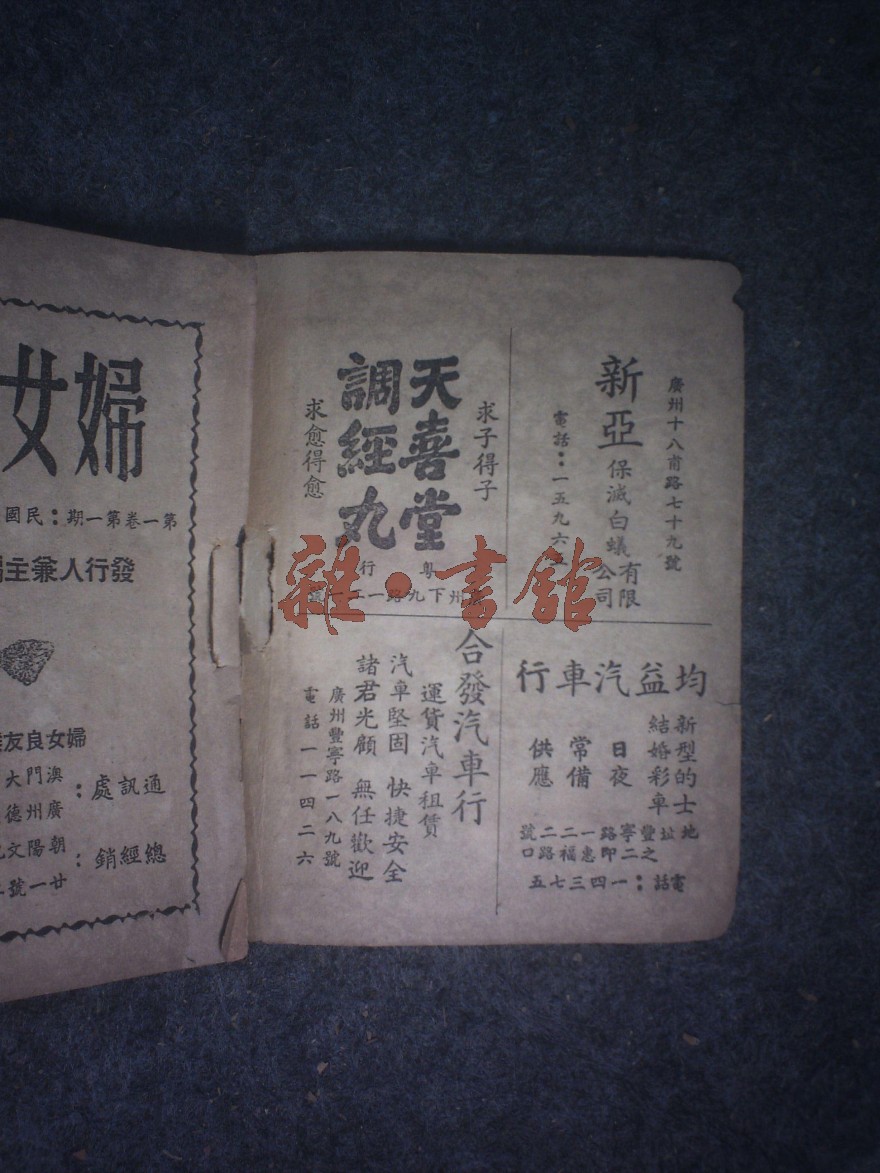 廣州十八甫路七十九號
新亞保滅白蟻有限公司
電話：一五九六五
求子得子
天喜堂
調經丸
求愈得愈
粵行
州下九路一二
均益汽車行
新型的士
結婚彩車
日夜
常備
供應
地址豐寧路一二二號
之二即惠福路口
電話：一四三七五
合發汽車行
運貨汽車租賃
汽車堅固 快捷安全
諸君光顧 無任歡迎
廣州豐寧路一八九號
電話一一四二六
婦女
第一卷第一期：民國
發行人兼主
婦女良友
通訊處：
澳門大
廣州德
總經銷：
朝陽文
廿一號
雜·書館